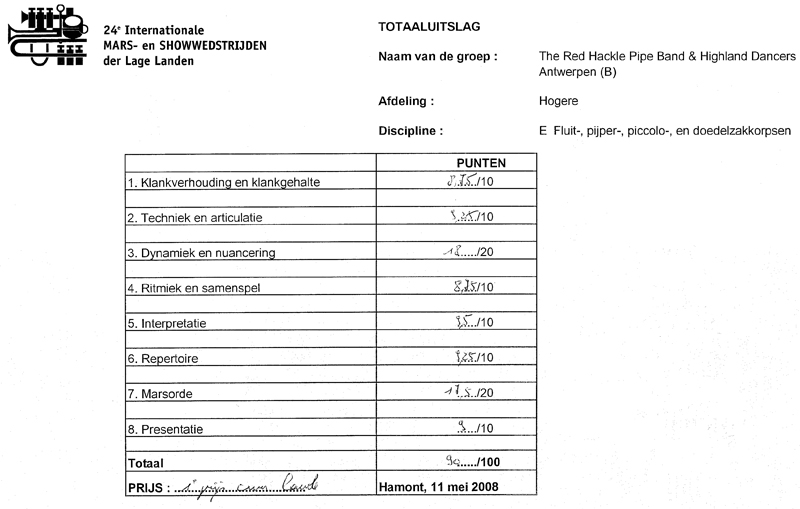 24e Internationale
MARS- en SHOWWEDSTRIJDEN
der Lage Landen
TOTAALUITSLAG
Naam van de groep : The Red Hackle Pipe Band & Highland Dancers
Antwerpen (B)
Afdeling : Hogere
Discipline : E Fluit-, pijper-, piccolo-, en doedelzakkorpsen
PUNTEN
1. Klankverhouding en klankgehalte 8,75/10
2. Techniek en articulatie 9,25/10
3. Dynamiek en nuancering 18...../20
4. Ritmiek en samenspel 8,75/10
5. Interpretatie 9,5../10
6. Repertoire 9,25/10
7. Marsorde 17,5../20
8. Presentatie 9..../10
Totaal 90...../100
PRIJS : 1e prijs cum laude Hamont, 11 mei 2008